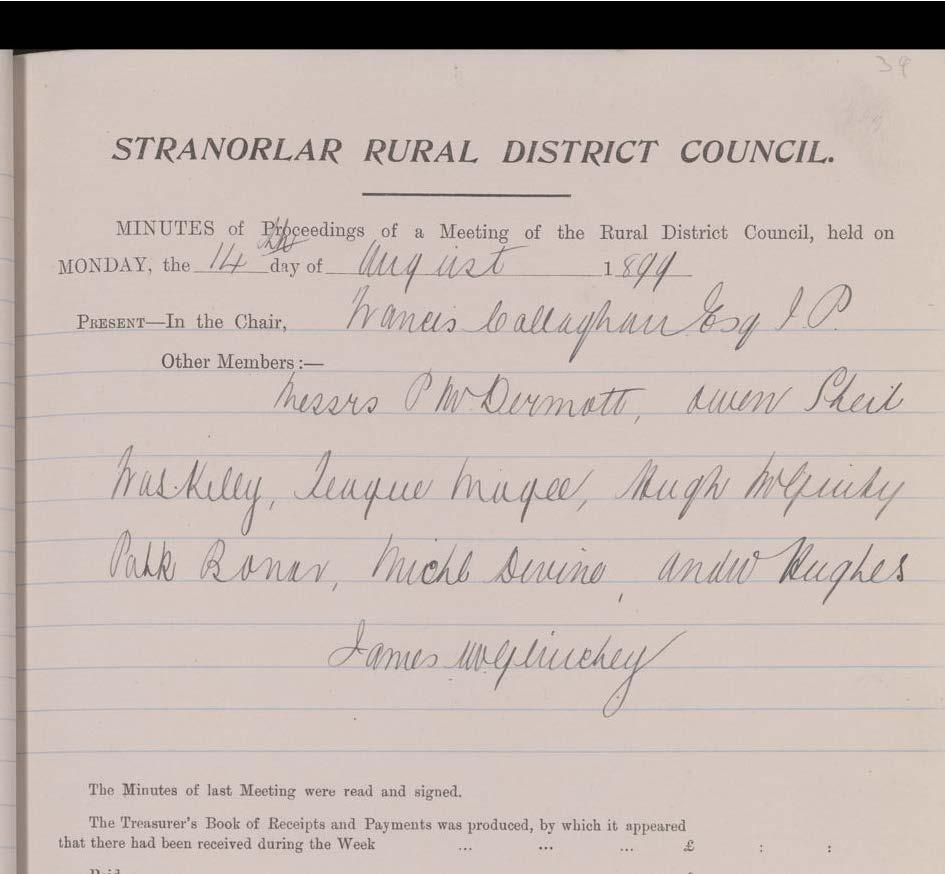 39
STRANORLAR RURAL DISTRICT COUNCIL.
MINUTES of Proceedings of a Meeting of the Rural District Council, held on
MONDAY, the 14th day of August 1899
PRESENT—In the Chair, Francis Callaghan Esq J. P.
Other Members:—
Messrs P McDermott, Owen Sheil
Fras. Kelly, Teague Magee, Hugh McGinty
Patk Bonar, Michl Devine, Andw Hughes
James McGlinchey
The Minutes of last Meeting were read and signed.
The Treasurer's Book of Receipts and Payments was produced, by which it appeared
that there had been received during the Week ... ... ... £ : :